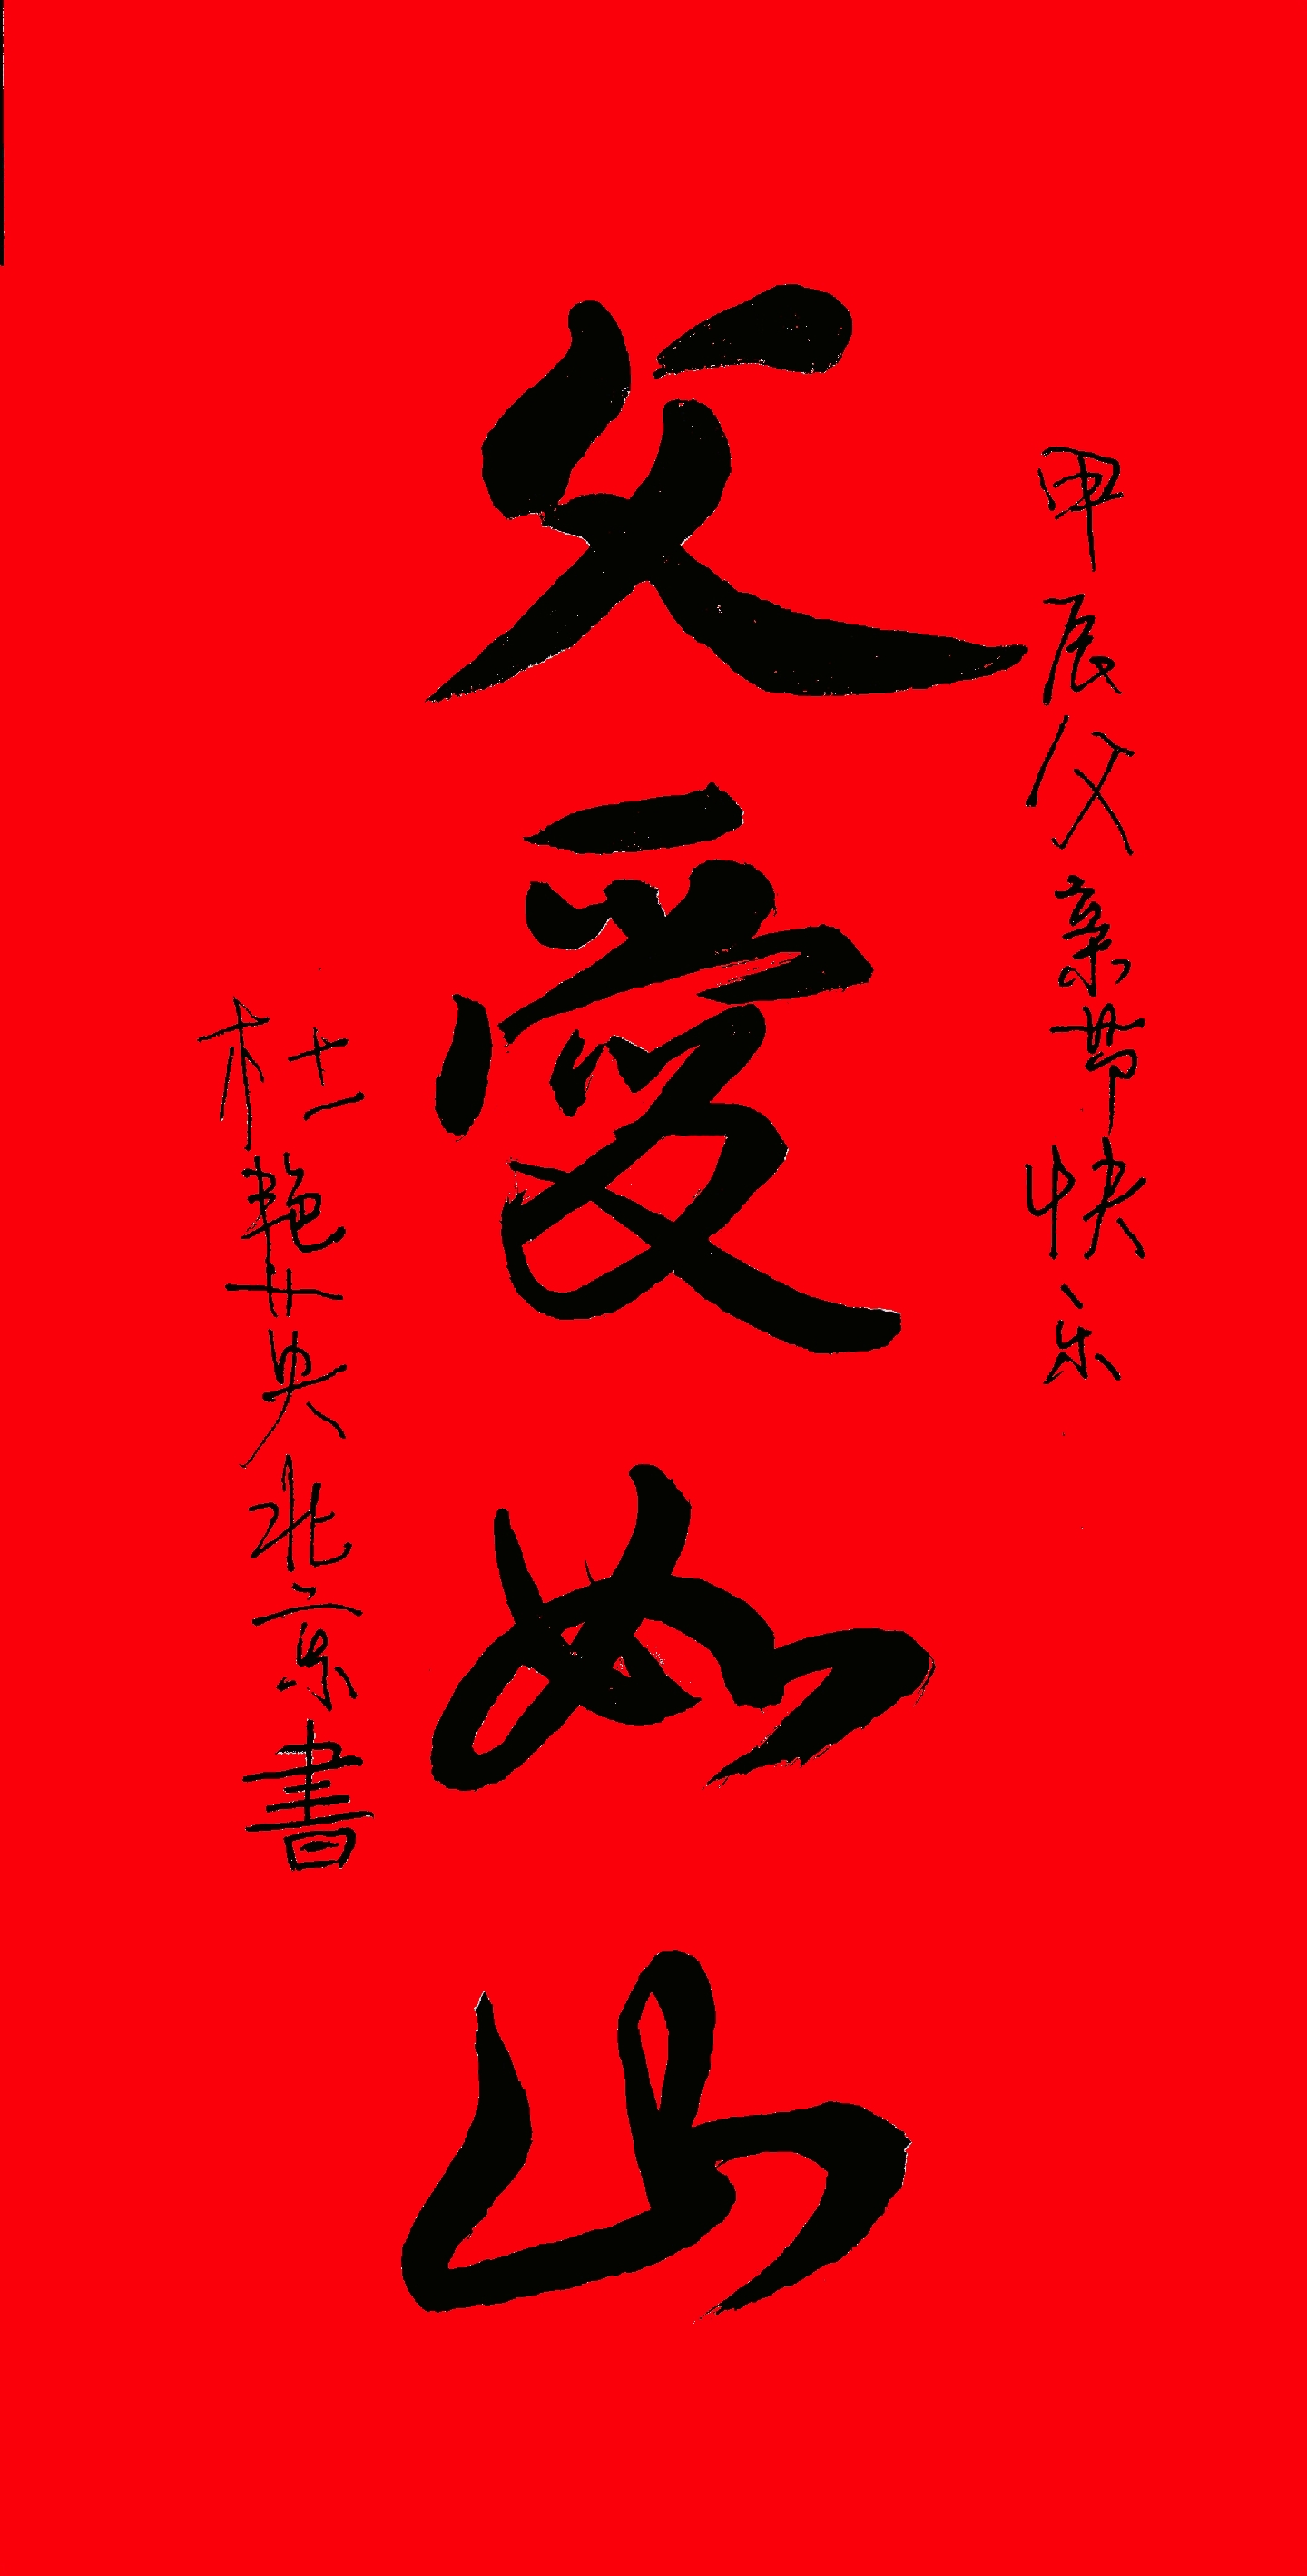 甲辰父亲节快乐
父愛如山
杜艳英北京書